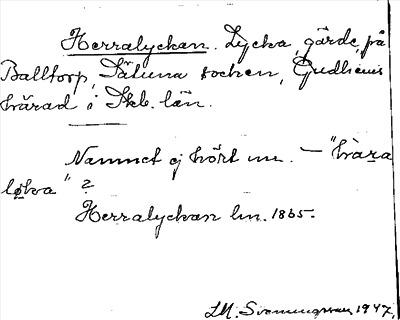 Herralyckan. Lycka, gärde, på
Balltorp, Säluna socken, Gudhems
härad i Skb. län.
Namnet ej hört nu. — "hàra
løka" ?
Herralyckan lm. 1865.
LM. Svenungsson 1947.